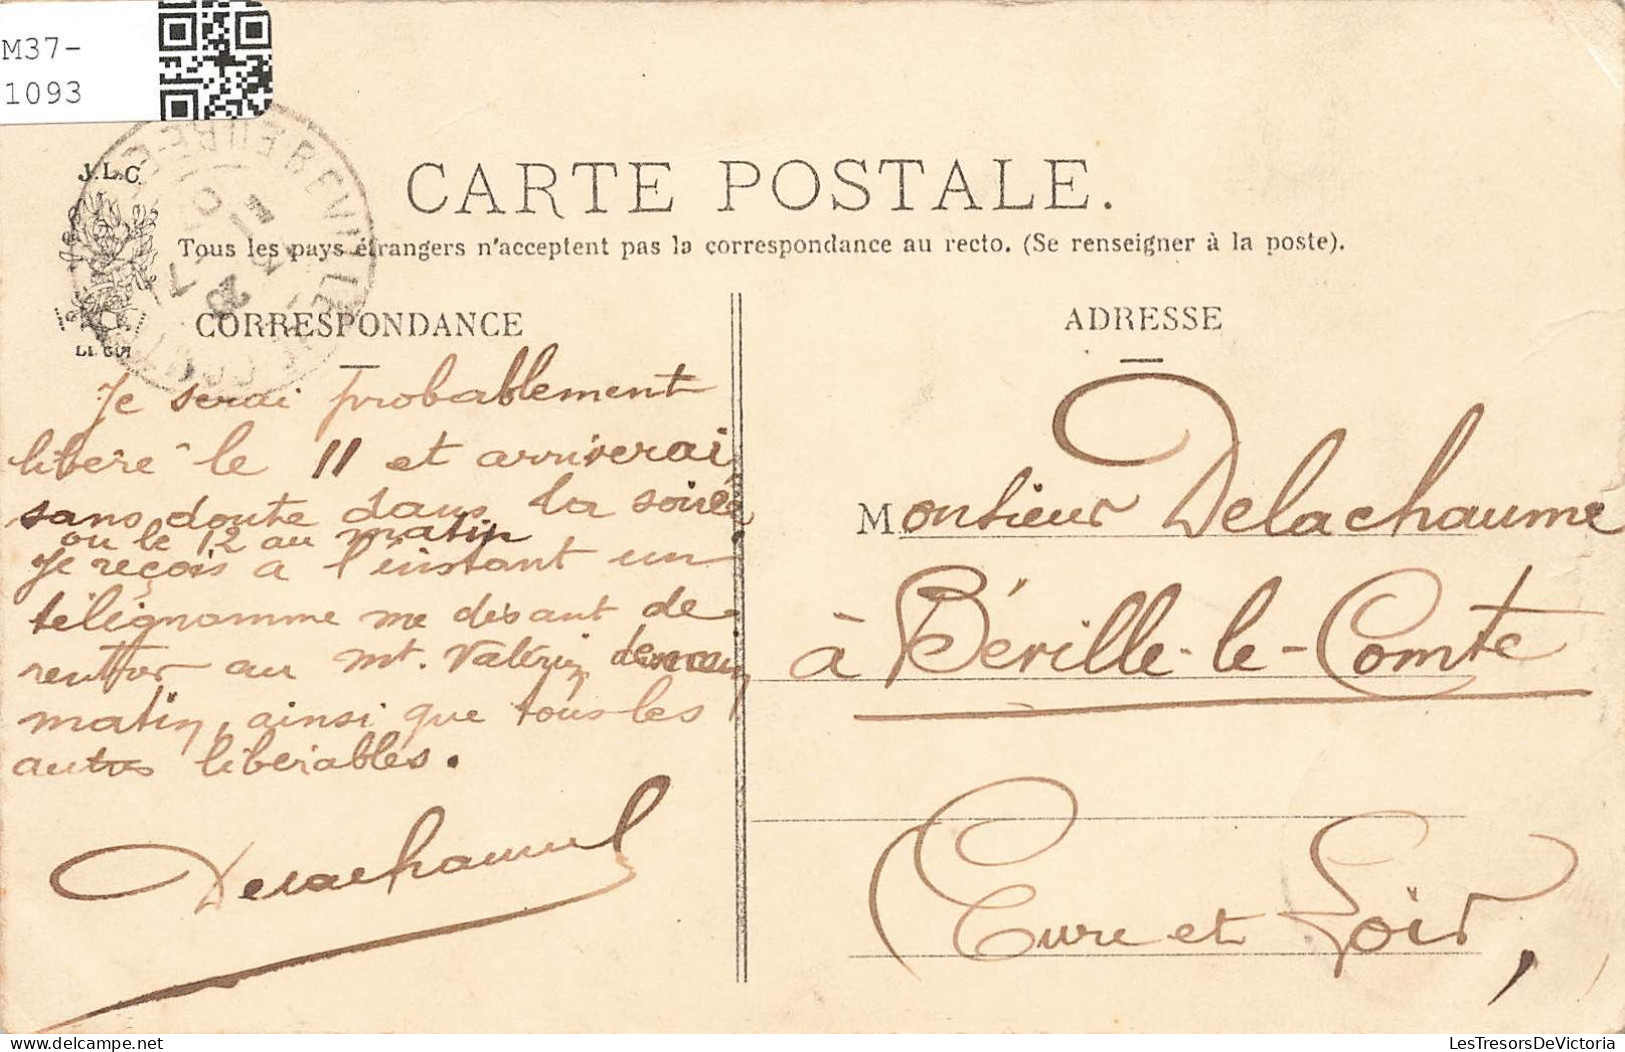 M37-
1093
J.L.C.
BEVILLE
EURE-
LE GUI
CARTE POSTALE.
Tous les pays étrangers n'acceptent pas la correspondance au recto. (Se renseigner à la poste).
CORRESPONDANCE
Je serai probablement
libéré le 11 et arriverai
sans doute dans la soirée
ou le 12 au matin
Je reçois a l'instant un
télégramme me disant de
rentrer au Mt. Valérien demain
matin, ainsi que tous les
autres libérables.
Delachaume
ADRESSE
Monsieur Delachaume
à Béville-le-Comte
Eure et Loir,
LesTresorsDeVictoria.com